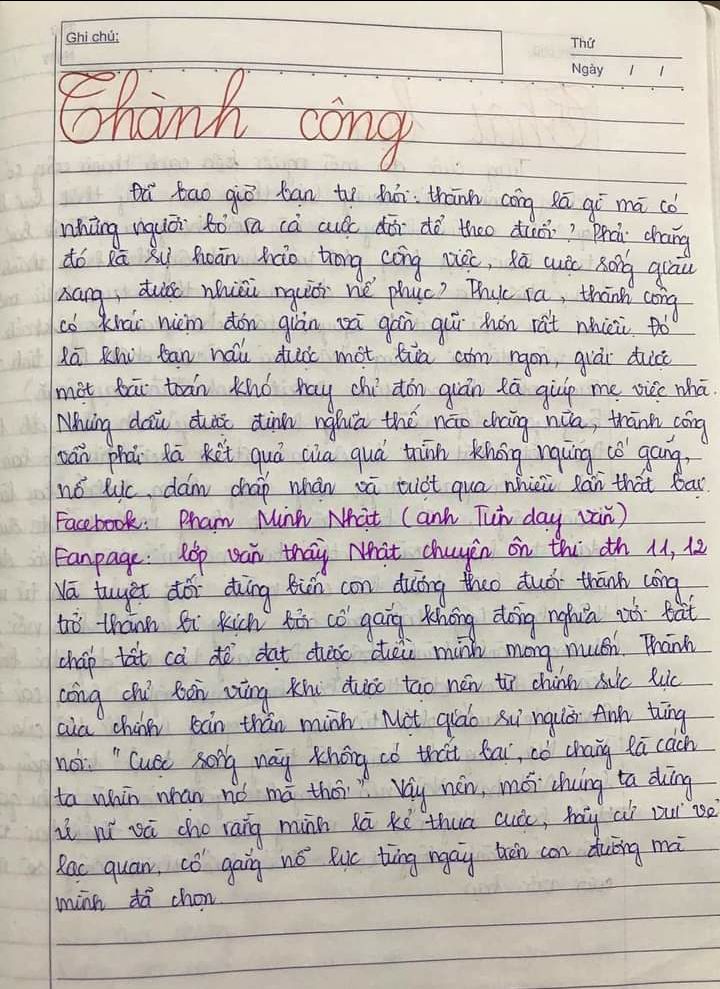 Ghi chú:
Thứ
Ngày / /
Thành công
Đã bao giờ bạn tự hỏi: thành công là gì mà có
những người bỏ ra cả cuộc đời để theo đuổi? Phải chăng
đó là sự hoàn hảo trong công việc, là cuộc sống giàu
sang, được nhiều người nể phục? Thực ra, thành công
có khái niệm đơn giản và gần gũi hơn rất nhiều. Đó
là khi bạn nấu được một bữa cơm ngon, giải được
một bài toán khó hay chỉ đơn giản là giúp mẹ việc nhà.
Nhưng dẫu được định nghĩa thế nào chăng nữa, thành công
vẫn phải là kết quả của quá trình không ngừng cố gắng,
nỗ lực, dám chấp nhận và vượt qua nhiều lần thất bại.
Facebook: Phạm Minh Nhật (anh Tũn dạy văn)
Fanpage: lớp văn thầy Nhật chuyên ôn thi đh 11, 12
Và tuyệt đối đừng biến con đường theo đuổi thành công
trở thành bi kịch bởi cố gắng không đồng nghĩa với bất
chấp tất cả để đạt được điều mình mong muốn. Thành
công chỉ bền vững khi được tạo nên từ chính sức lực
của chính bản thân mình. Một giáo sư người Anh từng
nói: "Cuộc sống này không có thất bại, có chăng là cách
ta nhìn nhận nó mà thôi". Vậy nên, mỗi chúng ta đừng
ủ rũ và cho rằng mình là kẻ thua cuộc, hãy cứ vui vẻ
lạc quan, cố gắng nỗ lực từng ngày trên con đường mà
mình đã chọn